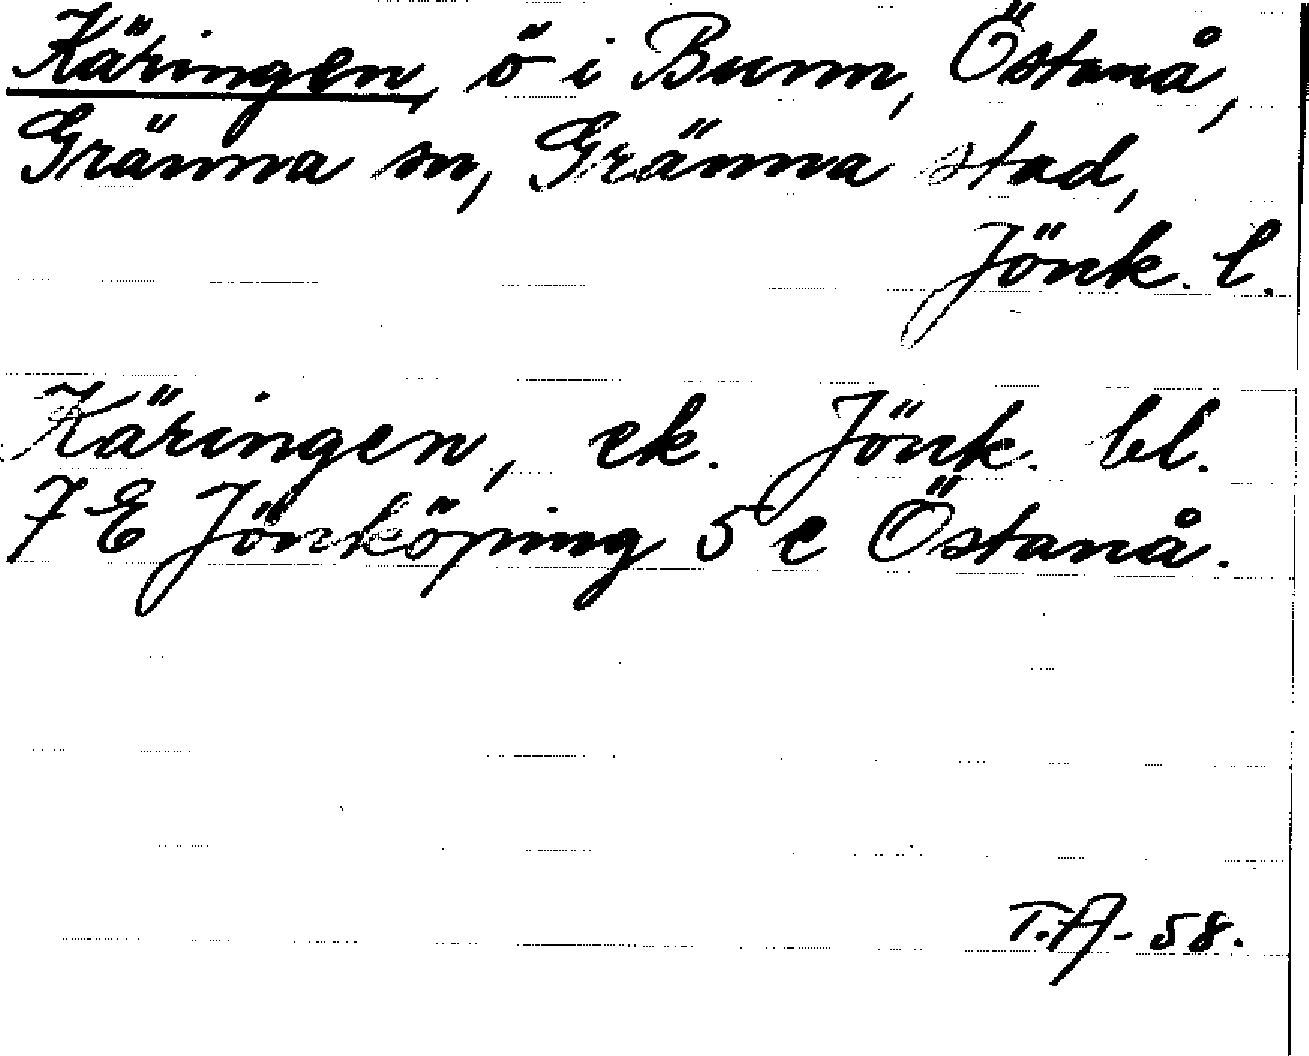 Käringen, ö i Bunn, Östanå,
Gränna sn, Gränna stad,
Jönk. l.
Käringen, ek. Jönk. bl.
7E Jönköping 5 e Östanå.
T.A- 58.